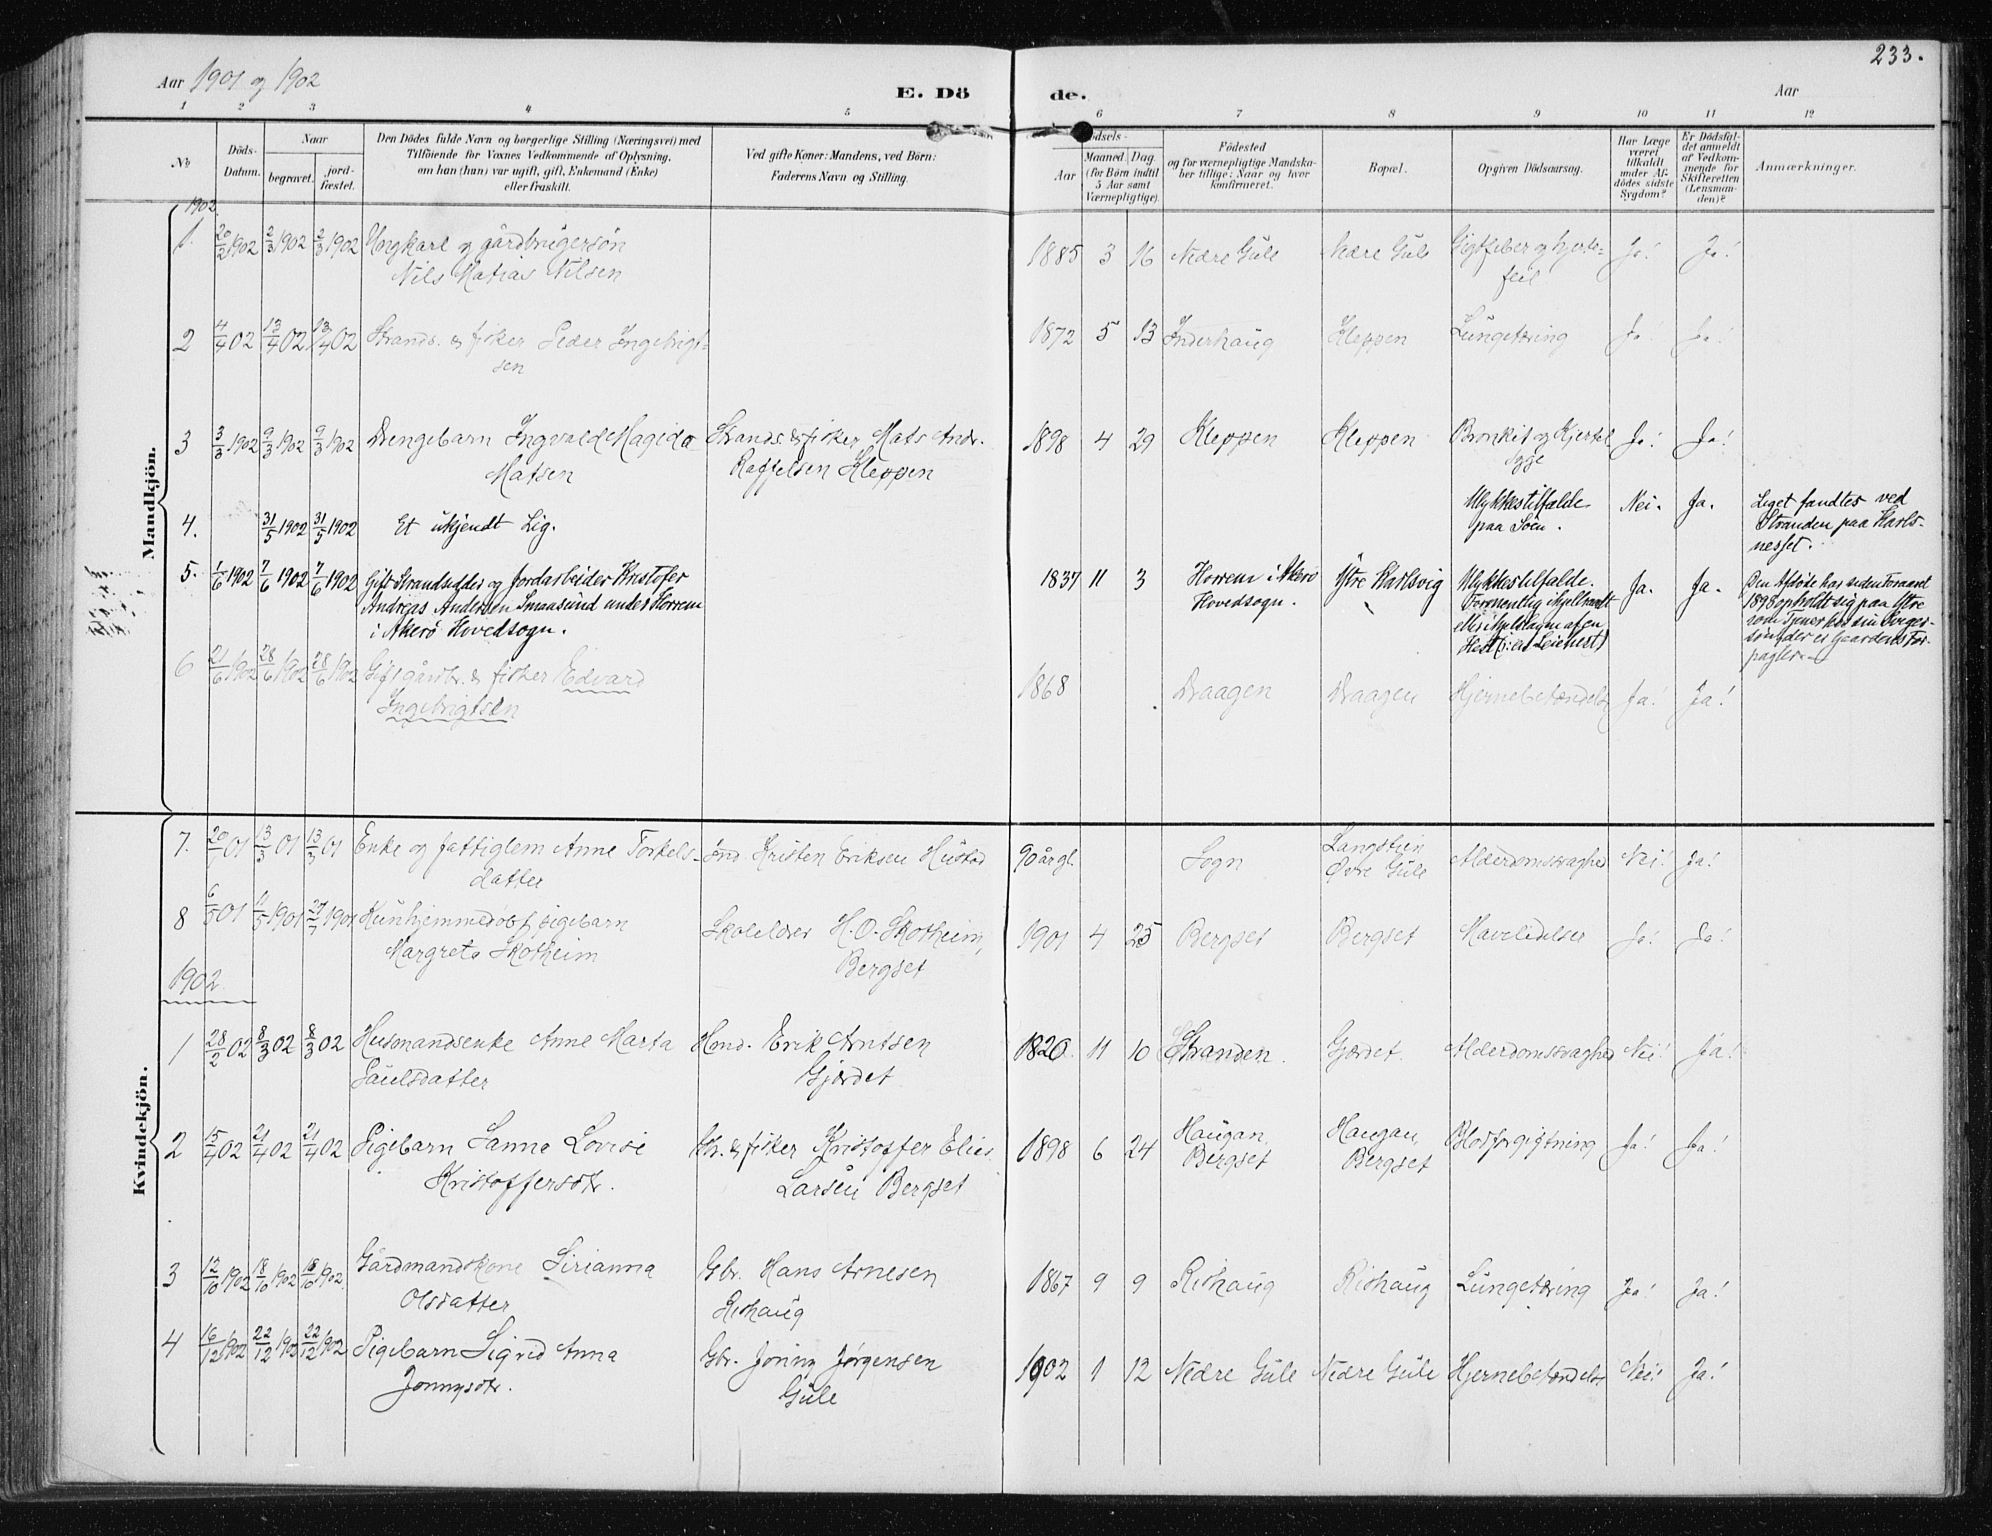 233.
Aar 1901 og 1902
E. Dö de.
Aar
1 2 3 4 5 6 7 8 9 10 11 12
No
Döds-Datum.
Naar
begravet.
jord-fæstet.
Den Dödes fulde Navn og borgerlige Stilling (Næringsvei) med
Tilföiende for Voxnes Vedkommende af Oplysning,
om han (hun) var ugift, gift, Enkemand (Enke)
eller fraskilt.
Ved gifte Koner: Mandens, ved Börn:
Faderens Navn og Stilling.
Aar
Maaned Dag
(for Börn indtil
5 Aar samt
Værnepligtige)
Födested
og for værnepligtige Mandska-
ber tillige: Naar og hvor
konfirmeret.
Bopæl.
Opgiven Dödsaarsag.
Har Læge
været
tilkaldt
under Af-
dödes sidste
Sygdom?
Er Dödsfal-
det anmeldt
af Vedkom-
mende for
Skifteretten
(Lensman-
den)?
Anmærkninger.
Mandkjön.
1902
1. 20/2 1902 2/3 1902 2/3 1902 Ungkarl og gårdbrugersøn 1885 3 16 Nedre Gule Nedre Gule Gigtfeber og hjerte- Ja! Ja!
Nils Matias Nilsen feil
2 4/4 02 13/4 02 13/4 02 Strands. & fisker Peder Ingebrigt- 1872 5 13 Inderhaug Kleppen Lungetæring Ja! Ja!
sen
3 3/3 1902 9/3 1902 9/3 1902 Drengebarn Ingvald Magido Strands. & fisker Mats Andr. 1898 4 29 Kleppen Kleppen Bronkit og Kjertel Ja! Ja!
Matsen Kleppen syge
4. 31/5 1902 31/5 1902 Et ukjendt Lig. Ulykkestilfælde Nei. Ja. Liget fandtes ved
paa Søen. Stranden paa Karls-
nesset.
5. 1/6 1902 7/6 1902 7/6 1902 Gift Strandsidder og Jordarbeider Kristofer 1837 11 3 Horrem i Akerø Ytre Karlsvig Ulykkestilfælde. Ja. Ja. Den Afdøde har siden Foraaret
Andreas Andersen Smaasund under Horrem Hovedsogn. 1898 opholdt sig paa Ytre
i Akerø Hovedsogn.
6 21/6 1902 28/6 1902 28/6 1902 Gift gårdbr. & fisker Edvard 1868 Draagen Draagen Hjernebetændelse Ja! Ja!
Ingebrigtsen
Kvindekjön.
7. 13/3 01 13/3 01 Enke og fattiglem Anne Torkels- Ind. Kristen Eriksen Hustad 90 år gl. Sogn Øvre Gule Alderdomssvaghed Nei! Ja!
datter
8 6/5 01 Margreta Skotheim H.O. Skotheim, 1901 4 25 Bergset Bergset Mavelidelser Ja! Ja!
Bergset
1902
1 28/2 02 8/3 02 8/3 02 Husmandsenke Anne Marta Hmd. Erik Arntsen 1820. 11 10 Stranden Gjærdet. Alderdomssvaghed Nei! Ja!
Paulsdatter Gjærdet
2 15/4 02 21/4 02 21/4 02 Pigebarn Sanna Lovise Str. & fisker Kristoffer Elias 1898 6 24 Haugan, Haugan, Blodforgiftning Ja! Ja!
Kristoffersdtr. Larsen Bergset Bergset Bergset
3 12/10 1902 18/10 1902 18/10 1902 Gårdmandskone Sirianna Gbr. Hans Arnesen 1867 9 9 Rishaug Rishaug Lungetæring Ja! Ja!
Olsdatter Rishaug
4 16/12 1902 22/12 1902 22/12 1902 Pigebarn Sigrid Anna Gbr. Jonny Jørgensen 1902 1 12 Nedre Gule Nedre Gule Hjernebetændelse Nei! Ja!
Jonnysdtr. Gule